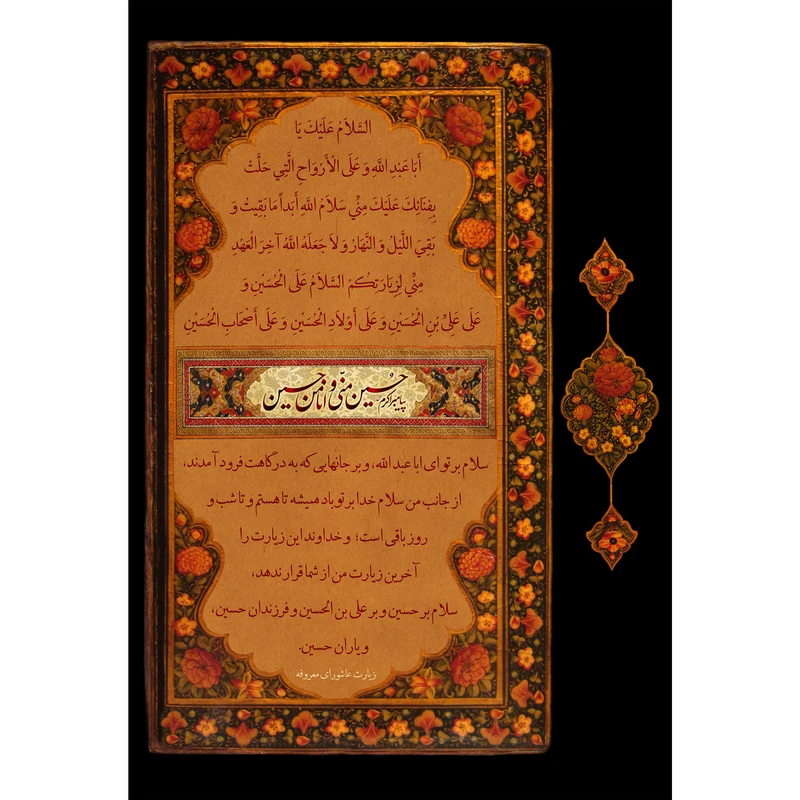 السَّلَامُ عَلَيْكَ يَا
أَبَا عَبْدِ اللَّهِ وَ عَلَى الْأَرْوَاحِ الَّتِي حَلَّتْ
بِفِنَائِكَ عَلَيْكَ مِنِّي سَلَامُ اللَّهِ أَبَداً مَا بَقِيتُ وَ
بَقِيَ اللَّيْلُ وَ النَّهَارُ وَ لَا جَعَلَهُ اللَّهُ آخِرَ الْعَهْدِ
مِنِّي لِزِيَارَتِكُمْ السَّلَامُ عَلَى الْحُسَيْنِ وَ
عَلَى عَلِيِّ بْنِ الْحُسَيْنِ وَ عَلَى أَوْلَادِ الْحُسَيْنِ وَ عَلَى أَصْحَابِ الْحُسَيْنِ
حُسین منّی و انا من حسین
پیامبر اکرم
سلام بر تو ای ابا عبد الله، و بر جانهایی که به درگاهت فرود آمدند،
از جانب من سلام خدا بر تو باد همیشه تا هستم و تا شب و
روز باقی است؛ و خداوند این زیارت را
آخرین زیارت من از شما قرار ندهد،
سلام بر حسین و بر علی بن الحسین و فرزندان حسین،
و یاران حسین.
زیارت عاشورای معروفه